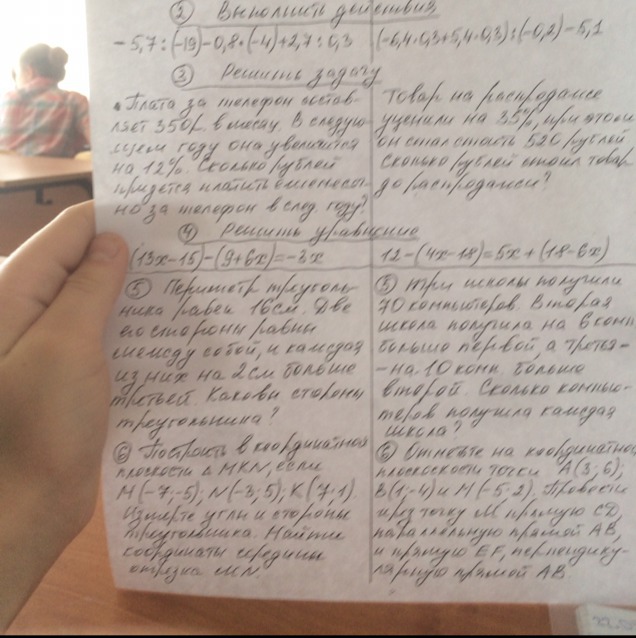 ② Выполнить действия
-5,7:(-19)-0,8·(-4)+2,7:0,3
(-6,4·0,3+5,4·0,3):(-0,2)-5,1
③ Решить задачу
Плата за телефон состав-
ляет 350р. в месяц. В следую-
щем году она увеличится
на 12%. Сколько рублей
придется платить ежемесяч-
но за телефон в след. году?
Товар на распродаже
уценили на 35%, при этом
он стал стоить 520 рублей
Сколько рублей стоил товар
до распродажи?
④ Решить уравнение
(13x-15)-(9+6x)=-3x
12-(4x-18)=5x+(18-6x)
⑤ Периметр треуголь-
ника равен 16см. Две
его стороны равны
между собой, и каждая
из них на 2см больше
третьей. Каковы стороны
треугольника?
⑤ Три школы получили
70 компьютеров. Вторая
школа получила на 6 комп
больше первой, а третья-
-на 10 комп. больше
второй. Сколько компью-
теров получила каждая
школа?
⑥ Построить в координатной
плоскости △ MKN, если
M(-7;-5); N(-3;5); K(7;1).
Измерьте углы и стороны
треугольника. Найти
координаты середины
отрезка MN.
⑥ Отметьте на координатной
плоскости точки A(3;6);
B(1;-4) и M(-5;2). Провести
через точку M прямую CD,
параллельную прямой AB,
и прямую EF, перпендику-
лярную прямой AB